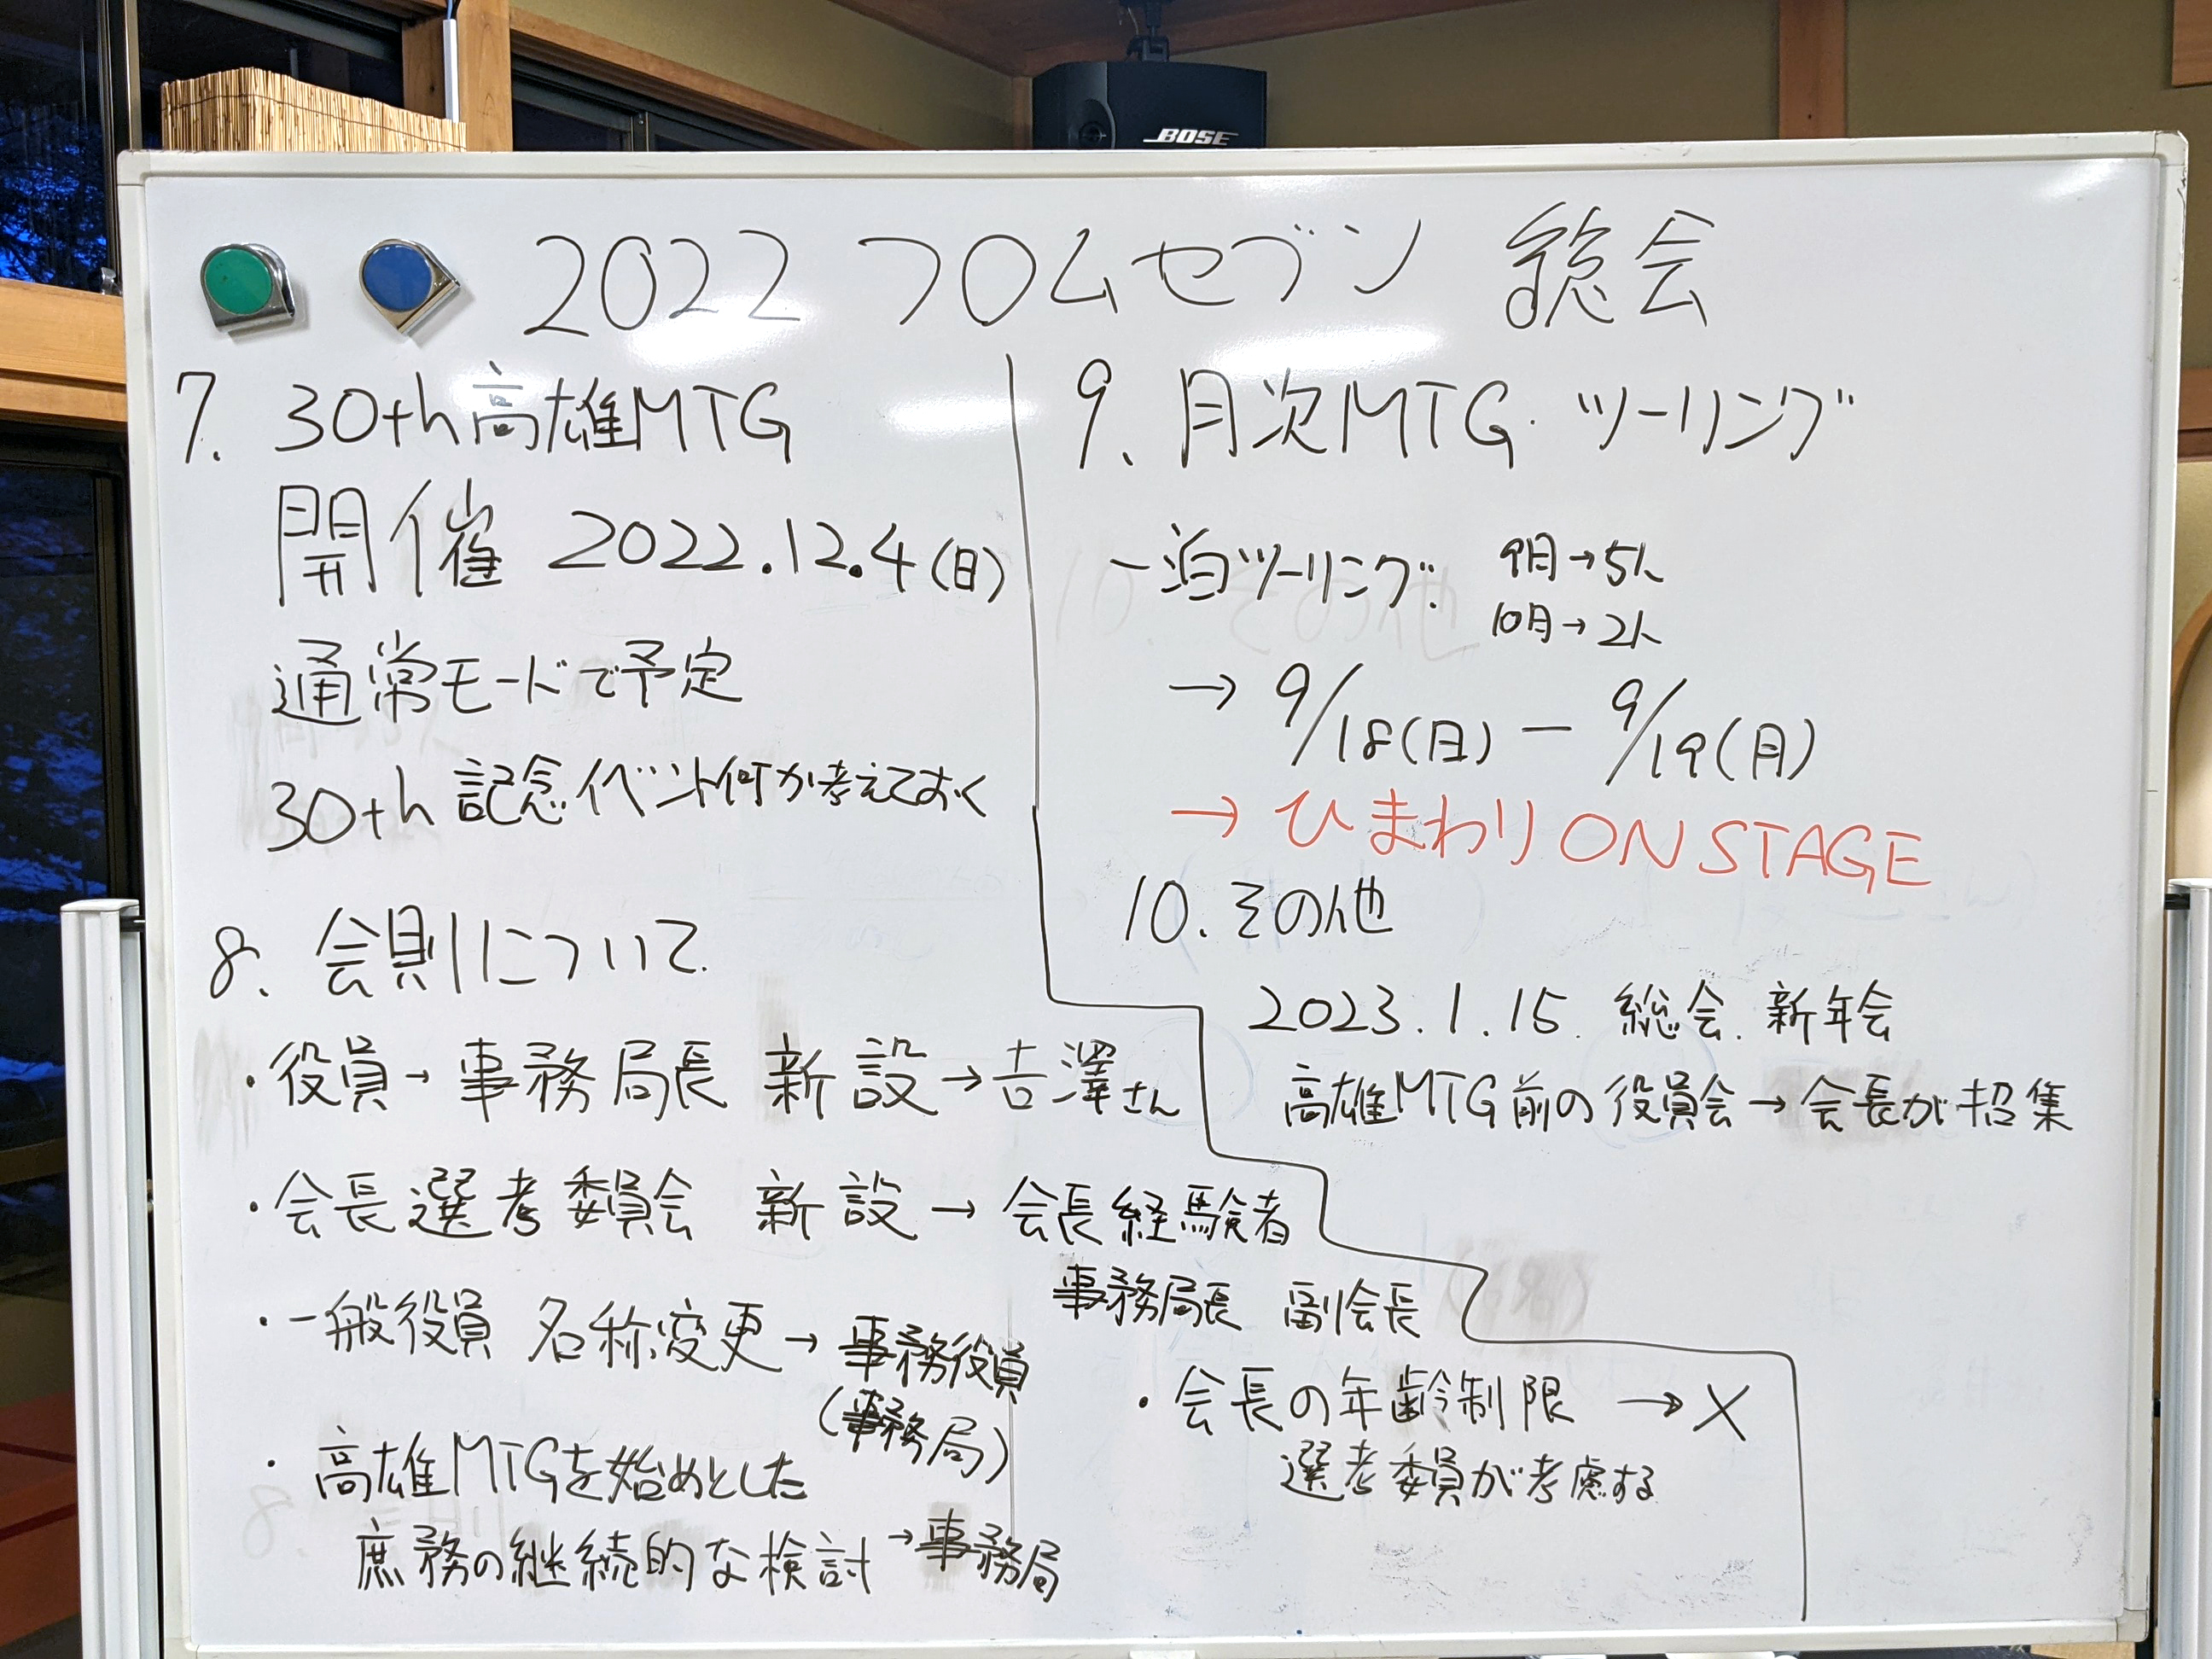 BOSE
2022 フロムセブン 総会
7. 30th高雄MTG
開催 2022.12.4(日)
通常モードで予定
30th 記念イベント何か考えておく
8. 会則について.
・役員→事務局長 新設→吉澤さん
・会長選考委員会 新設→会長経験者
事務局長 副会長
・一般役員 名称変更→事務役員
(事務局)
・高雄MTGを始めとした
庶務の継続的な検討→事務局
・会長の年齢制限→×
選考委員が考慮する
9. 月次MTG・ツーリング
一泊ツーリング. 9月→5人
10月→2人
→9/18(日)ー9/19(月)
→ひまわりON STAGE
10. その他
2023.1.15. 総会. 新年会
高雄MTG前の役員会→会長が招集